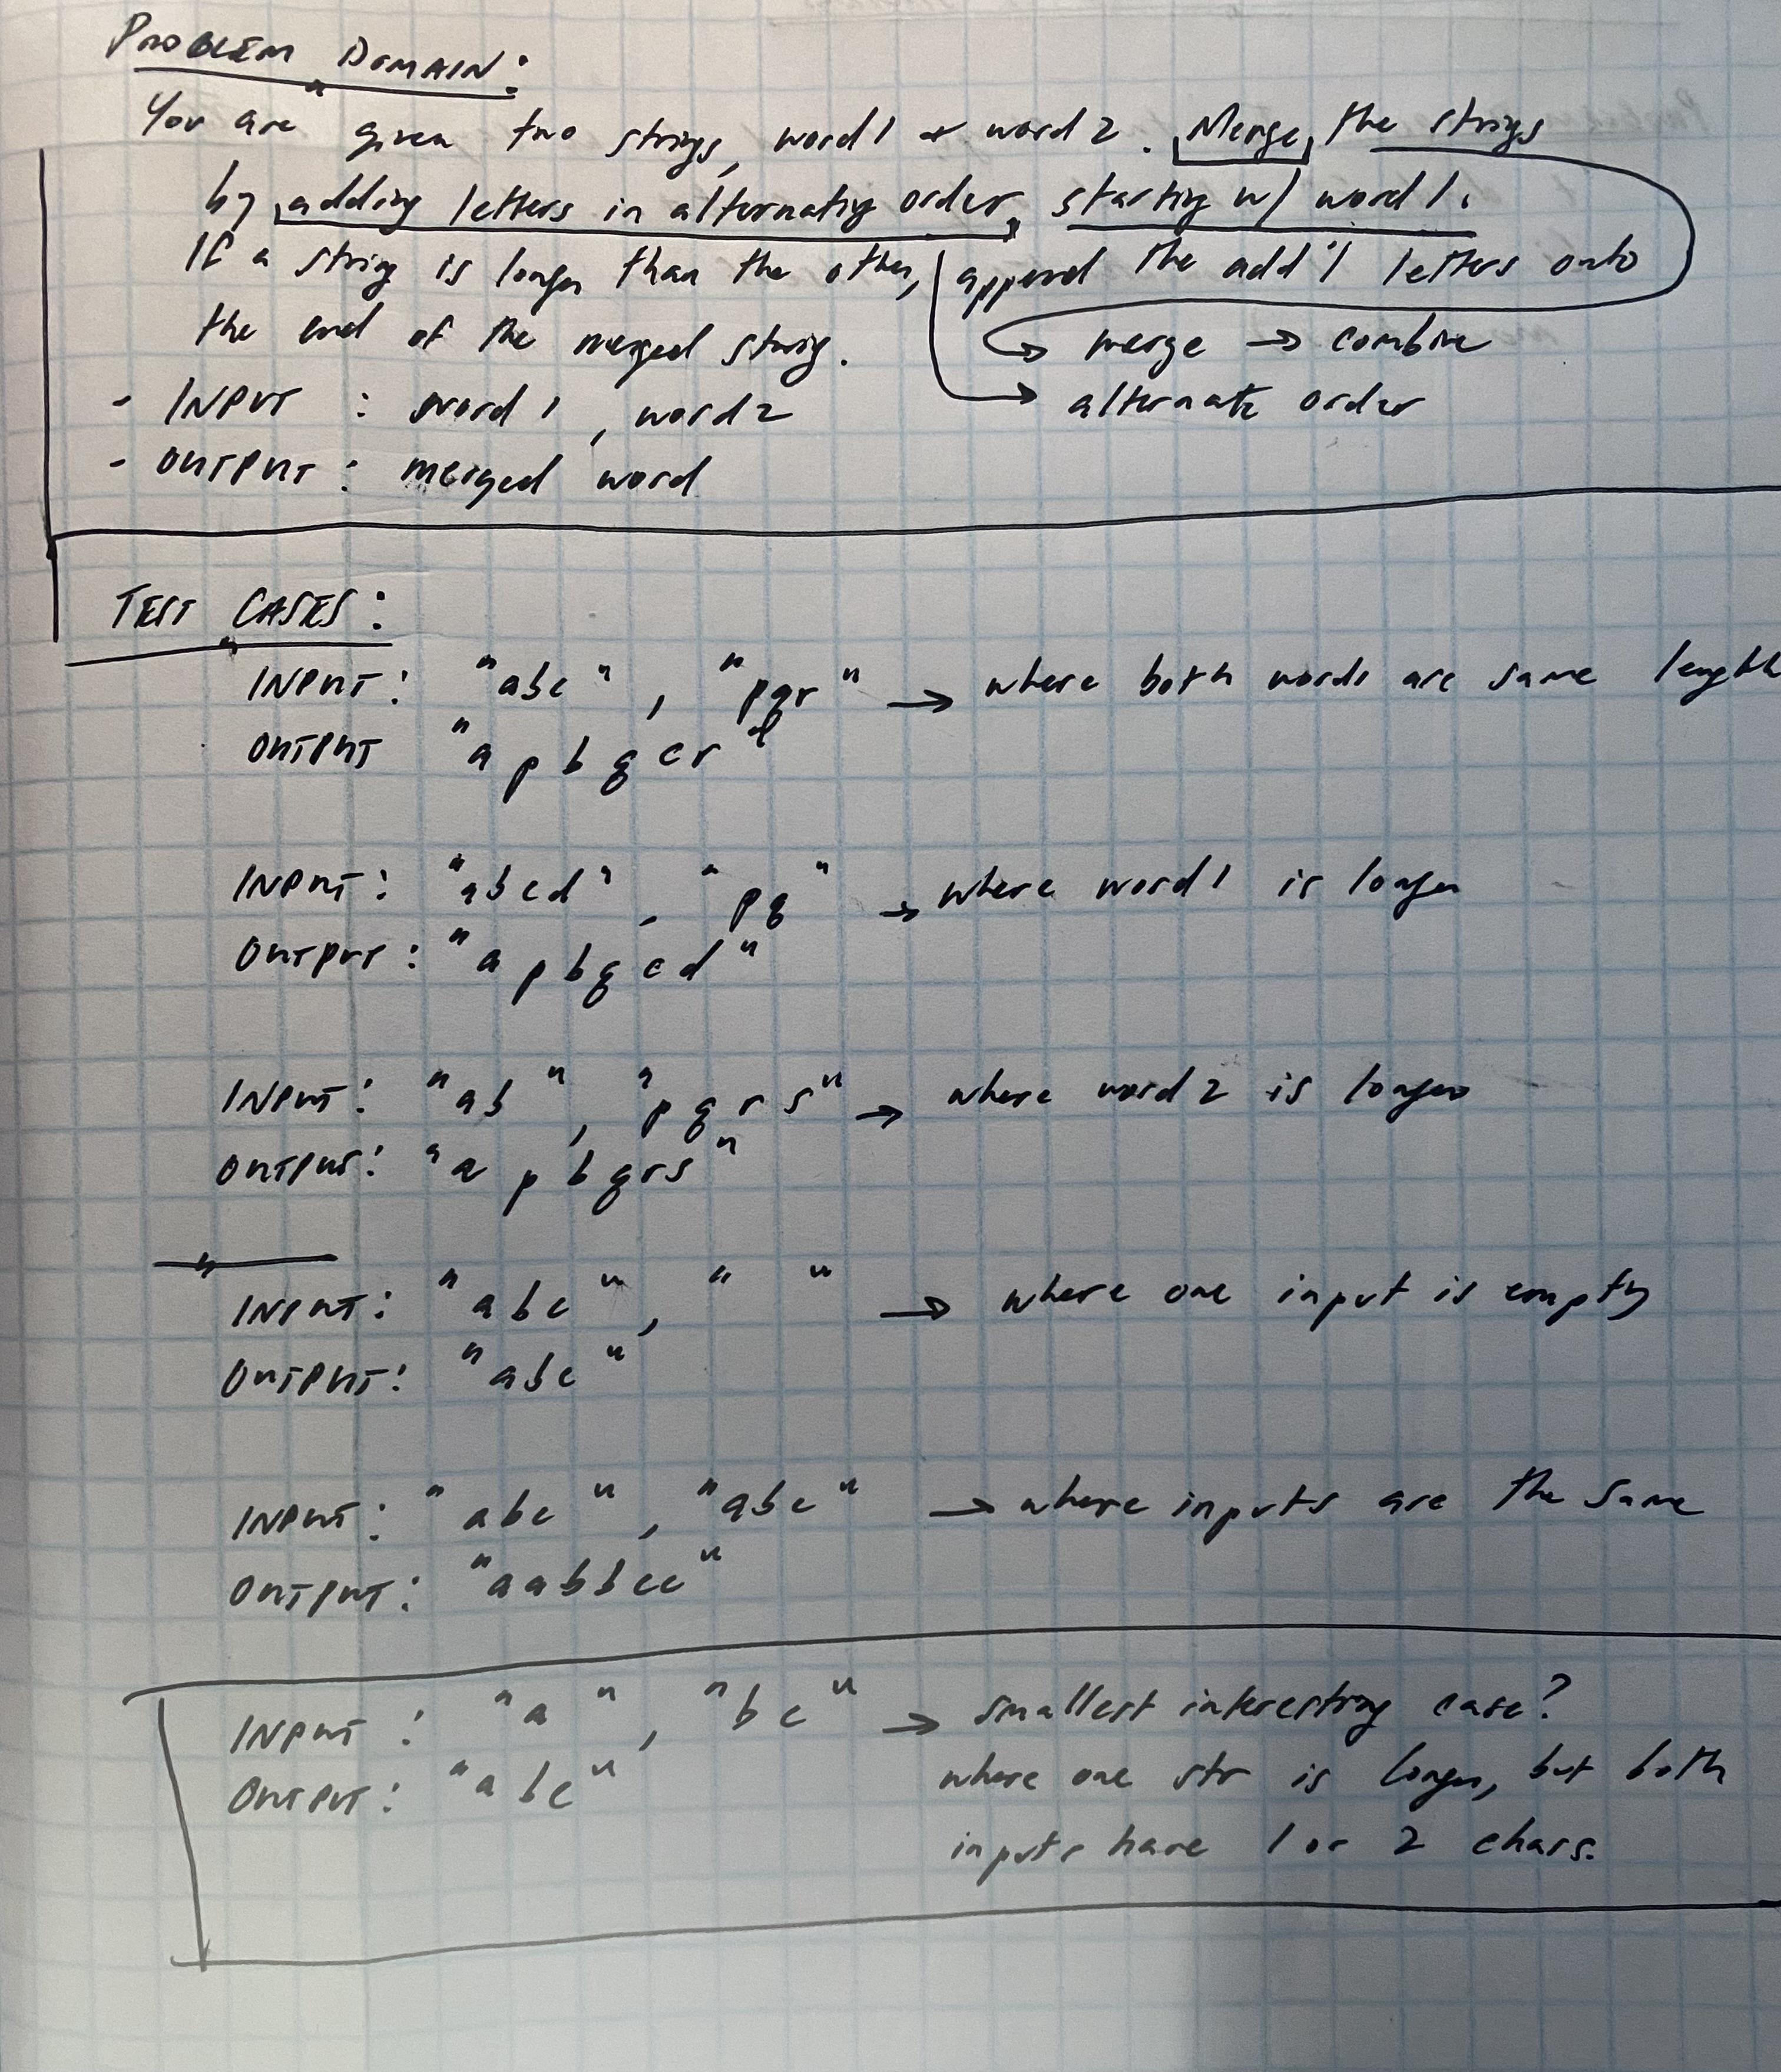 PROBLEM DOMAIN:
You are given two strings, word1 & word2. Merge the strings
by adding letters in alternating order, starting w/ word1.
If a string is longer than the other, append the add'l letters onto
the end of the merged string.
→ merge → combine
- INPUT : word1, word2
→ alternate order
- OUTPUT : merged word
TEST CASES:
INPUT: "abc", "pqr" → where both words are same length
OUTPUT "apbqcr"
INPUT: "abcd", "pq" → where word1 is longer
OUTPUT: "apbqcd"
INPUT: "ab", "pqrs" → where word2 is longer
OUTPUT: "apbqrs"
INPUT: "abc", " " → where one input is empty
OUTPUT: "abc"
INPUT: "abc", "abc" → where inputs are the same
OUTPUT: "aabbcc"
INPUT : "a", "bc" → smallest interesting case?
OUTPUT: "abc" where one str is longer, but both
inputs have 1 or 2 chars.